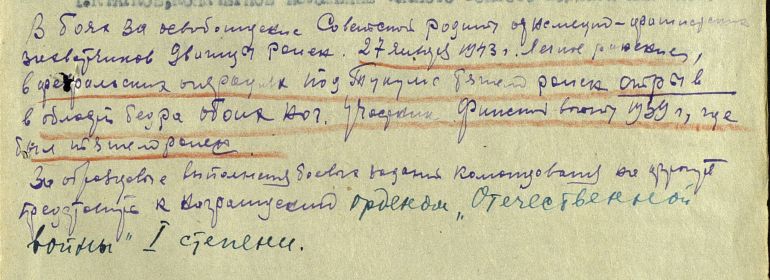 В боях за освобождение Советской родины от немецко-фашистских
захватчиков дважды ранен. 27 января 1943 г. Легкое ранение,
в февральских операциях под тяжело ранен
в области бедра обоих ног. Участник Финской войны 1939 г, где
был тяжело ранен.
За образцовые выполнения боевые задания командования
к награждению орденом „Отечественной
войны" I степени.